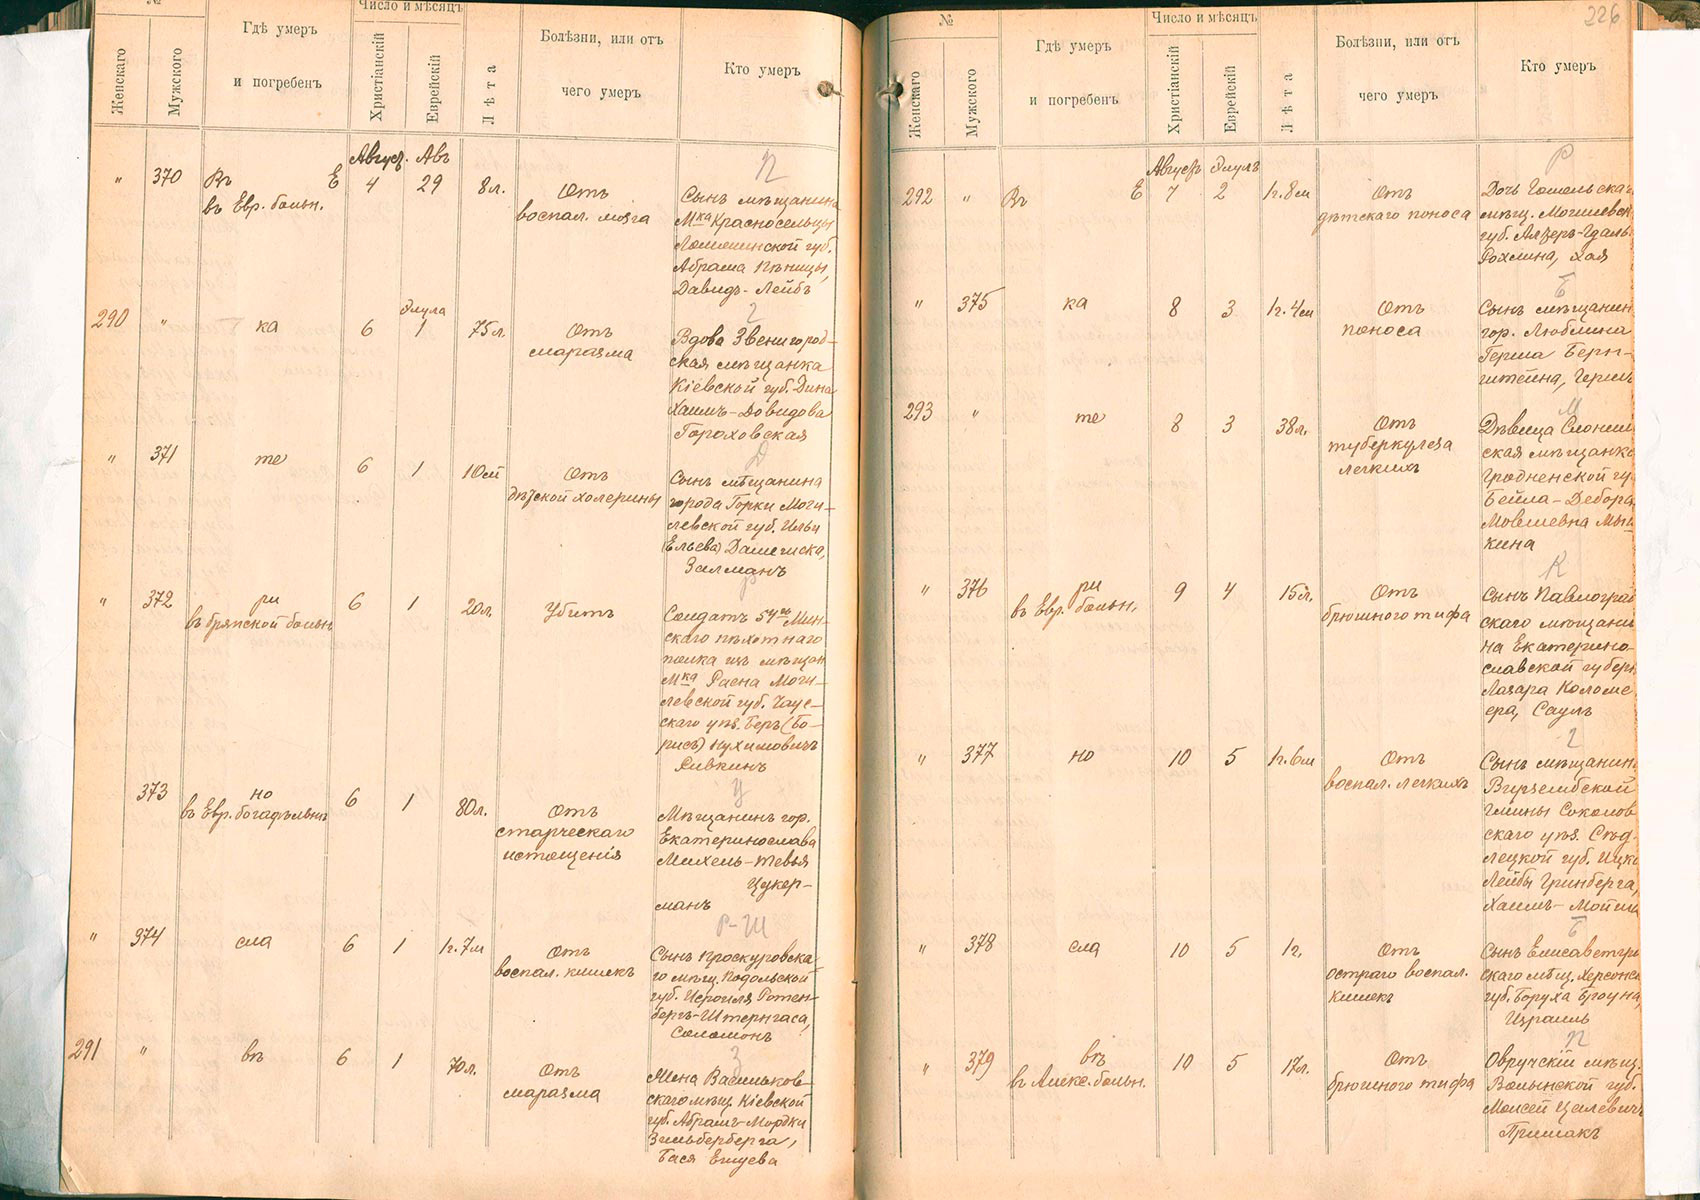 №
Женскаго
Мужского
Гдѣ умеръ
и погребенъ
Число и мѣсяцъ
Христіанскій
Еврейскій
Лѣта
Болѣзни, или отъ
чего умеръ
Кто умеръ
Август. Авъ
П
" 370 Въ Е 4 29 8 л.
въ Евр. больн.
Отъ
воспал. мозга
Сынъ мѣщанина
Мка Красносельцы
Ломжинской губ.
Абрама Пѣницы,
Давидъ-Лейбъ
Элула
Г
290 " ка 6 1 75 л.
Отъ
маразма
Вдова Звенигород-
ская мѣщанка
Кіевской губ. Дина
Хаимъ-Довидова
Гороховская
Д
" 371 те 6 1 10 м
Отъ
дѣтской холерины
Сынъ мѣщанина
города Горки Моги-
левской губ. Ильи
(Ельева)
Залманъ
Р
" 372 ри 6 1 20 л.
въ брянской больн.
Убитъ
Солдатъ 54го Мин-
скаго пѣхотнаго
полка изъ мѣщан
Мка Расна Моги-
левской губ. Чаус-
скаго уѣз. Беръ (Бо-
рисъ) Нухимовичъ
Ривкинъ
Ц
373 но 6 1 80 л.
въ Евр. богадѣльнѣ
Отъ
старческаго
истощенія
Мѣщанинъ гор.
Екатеринослава
Михель-Тевья
Цукер-
манъ
Р-Ш
" 374 сла 6 1 1 г. 7 м
Отъ
воспал. кишекъ
Сынъ Проскуровска-
го мѣщ. Подольской
губ. Исроиля Ротен-
бергъ-Штернгаса,
Соломонъ
З
291 " въ 6 1 70 л.
Отъ
маразма
Жена Васильков-
скаго мѣщ. Кіевской
губ. Абрамъ-Мордки
Зильберберга,
Бася Ешуева
226
№
Женскаго
Мужского
Гдѣ умеръ
и погребенъ
Число и мѣсяцъ
Христіанскій
Еврейскій
Лѣта
Болѣзни, или отъ
чего умеръ
Кто умеръ
Августъ Элулъ
Р
292 " Въ Е 7 2 1 г. 8 м
Отъ
дѣтскаго поноса
Дочь Гомельска
мѣщ. Могилевск
губ.
Рохлина, Хая
Б
" 375 ка 8 3 1 г. 4 м
Отъ
поноса
Сынъ мѣщанин
гор. Люблина
Герша Берн-
штейна,
М
293 " те 8 3 38 л.
Отъ
туберкулеза
легкихъ
Дѣвица Слоним
ская мѣщанка
Гродненской гу
Бейла-Дебора
Мовшевна Мыш
кина
К
" 376 ри 9 4 15 л.
въ Евр. больн.
Отъ
брюшного тифа
Сынъ Павлоград
скаго мѣщани
на Екатерино-
славской губерн
Лазара Коломе
ера, Саулъ
Г
" 377 но 10 5 1 г. 6 м
Отъ
воспал. легкихъ
Сынъ мѣщанин
Гмины Соколов
скаго уѣз. Сѣд-
лецкой губ. Ицко
Лейбы Гринберга,
Хаимъ-Мойша
Б
" 378 сла 10 5 1 г.
Отъ
остраго воспал.
кишекъ
Сынъ Елисаветгра
скаго мѣщ. Херсонск
губ. Боруха Броуна,
Израиль
П
" 379 въ 10 5 17 л.
въ Алекс. больн.
Отъ
брюшного тифа
Овручскій мѣщ.
Волынской губ.
Моисей Целевич
Пришакъ